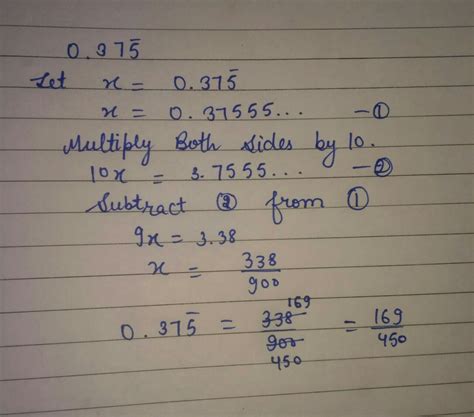 0.375̄
Let x = 0.375̄
x = 0.37555... —①
Multiply Both sides by 10.
10x = 3.7555... —②
Subtract ② from ①
9x = 3.38
x = 338/900
0.375̄ = 338/900 169/450 = 169/450